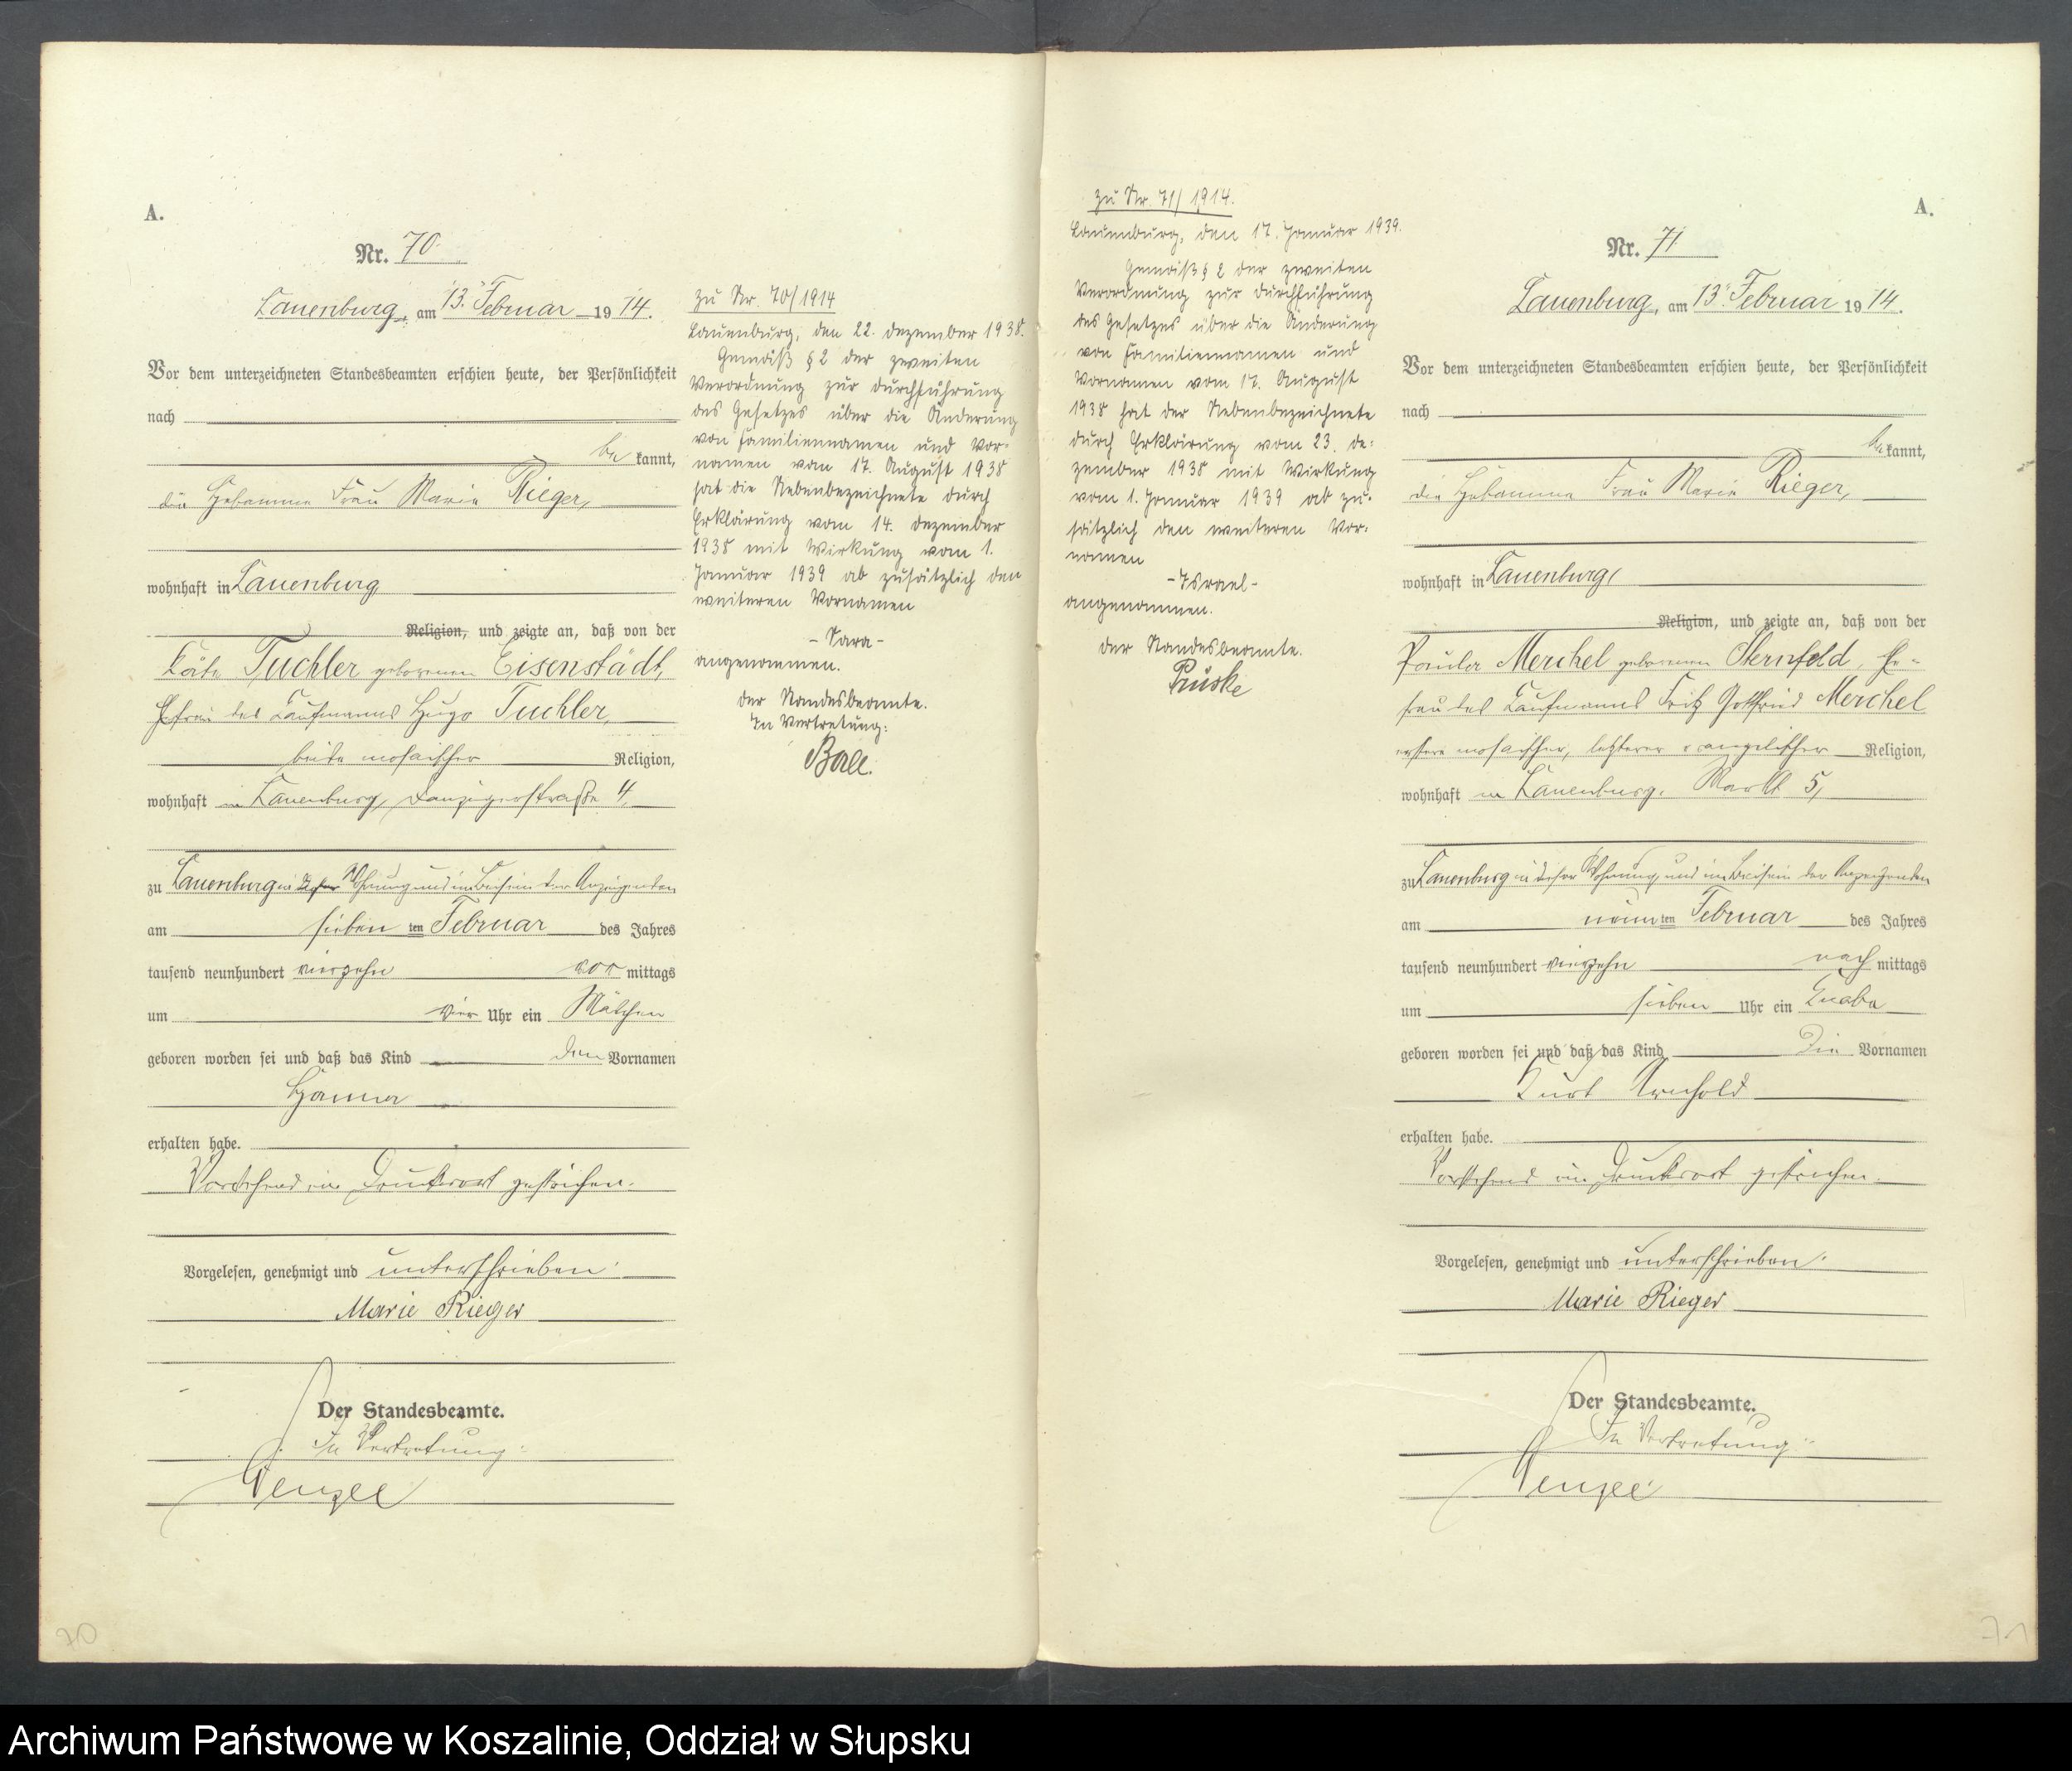 A.
Nr. 70.
Lauenburg, am 13. Februar 1914.
Vor dem unterzeichneten Standesbeamten erschien heute, der Persönlichkeit
nach
be kannt,
die Hebamme Frau Marie Rieger,
wohnhaft in Lauenburg
Religion, und zeigte an, daß von der
Käte Tuchler geborenen Eisenstädt,
Ehefrau des Kaufmanns Hugo Tuchler,
beide mosaischer Religion,
wohnhaft in Lauenburg, Danzigerstraße 4,
zu Lauenburg in Wohnung und im Beisein der Anzeigenden
am sieben ten Februar des Jahres
tausend neunhundert vierzehn vor mittags
um vier Uhr ein Mädchen
geboren worden sei und daß das Kind den Vornamen
Hanna
erhalten habe.
Vorstehend ein Druckwort gestrichen.
Vorgelesen, genehmigt und unterschrieben:
Marie Rieger
Der Standesbeamte.
In Vertretung:
Wenzel
70
zu Nr. 70/1914
Lauenburg, den 22. Dezember 1938.
Gemäß § 2 der zweiten
Verordnung zur Durchführung
des Gesetzes über die Änderung
von Familiennamen und Vor-
namen vom 17. August 1938
hat die Nebenbezeichnete durch
Erklärung vom 14. Dezember
1938 mit Wirkung vom 1.
Januar 1939 ab zusätzlich den
weiteren Vornamen
- Sara -
angenommen.
Der Standesbeamte.
In Vertretung:
zu Nr. 71/1914.
Lauenburg, den 17. Januar 1939.
Gemäß § 2 der zweiten
Verordnung zur Durchführung
des Gesetzes über die Änderung
von Familiennamen und
Vornamen vom 17. August
1938 hat der Nebenbezeichnete
durch Erklärung vom 23. De-
zember 1938 mit Wirkung
vom 1. Januar 1939 ab zu-
sätzlich den weiteren Vor-
namen
- Israel -
angenommen.
Der Standesbeamte.
A.
Nr. 71
Lauenburg, am 13. Februar 1914.
Vor dem unterzeichneten Standesbeamten erschien heute, der Persönlichkeit
nach
be kannt,
die Hebamme Frau Marie Rieger,
wohnhaft in Lauenburg,
Religion, und zeigte an, daß von der
Merchel geborenen Sternfeld, Ehe-
frau des Kaufmanns Fritz Gottfried Merchel
erstere mosaischer, letzterer evangelischer Religion,
wohnhaft in Lauenburg, Markt 5,
zu Lauenburg in dieser Wohnung und im Beisein der Anzeigenden
am neun ten Februar des Jahres
tausend neunhundert vierzehn nach mittags
um sieben Uhr ein Knabe
geboren worden sei und daß das Kind die Vornamen
Kurt Arnhold
erhalten habe.
Vorstehend ein Druckwort gestrichen.
Vorgelesen, genehmigt und unterschrieben:
Marie Rieger
Der Standesbeamte.
In Vertretung:
Wenzel
71
Archiwum Państwowe w Koszalinie, Oddział w Słupsku